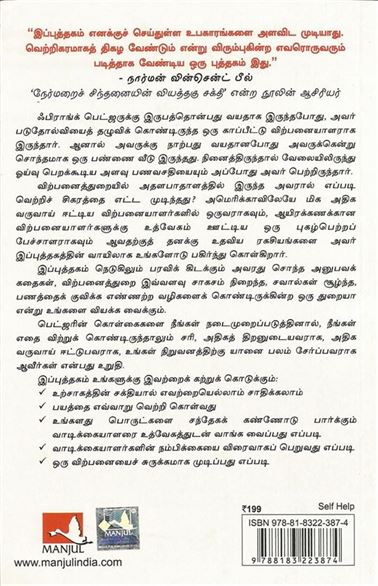 "இப்புத்தகம் எனக்குச் செய்துள்ள உபகாரங்களை அளவிட முடியாது.
வெற்றிகரமாகத் திகழ வேண்டும் என்று விரும்புகின்ற எவரொருவரும்
படித்தாக வேண்டிய ஒரு புத்தகம் இது."
- நார்மன் வின்சென்ட் பீல்
'நேர்மறைச் சிந்தனையின் வியத்தகு சக்தி' என்ற நூலின் ஆசிரியர்
ஃபிராங்க் பெட்ஜருக்கு இருபத்தொன்பது வயதாக இருந்தபோது, அவர்
படுதோல்வியைத் தழுவிக் கொண்டிருந்த ஒரு காப்பீட்டு விற்பனையாளராக
இருந்தார். ஆனால் அவருக்கு நாற்பது வயதானபோது அவருக்கென்று
சொந்தமாக ஒரு பண்ணை வீடு இருந்தது. நினைத்திருந்தால் வேலையிலிருந்து
ஓய்வு பெறக்கூடிய அளவு பணவசதியையும் அப்போது அவர் பெற்றிருந்தார்.
விற்பனைத்துறையில் அதளபாதாளத்தில் இருந்த அவரால் எப்படி
வெற்றிச் சிகரத்தை எட்ட முடிந்தது? அமெரிக்காவிலேயே மிக அதிக
வருவாய் ஈட்டிய விற்பனையாளர்களில் ஒருவராகவும், ஆயிரக்கணக்கான
விற்பனையாளர்களுக்கு உத்வேகம் ஊட்டிய ஒரு புகழ்பெற்றப்
பேச்சாளராகவும் ஆவதற்குத் தனக்கு உதவிய ரகசியங்களை அவர்
இப்புத்தகத்தின் வாயிலாக உங்களோடு பகிர்ந்து கொள்கிறார்.
இப்புத்தகம் நெடுகிலும் பரவிக் கிடக்கும் அவரது சொந்த அனுபவக்
கதைகள், விற்பனைத்துறை இவ்வளவு சாகசம் நிறைந்த, சவால்கள் சூழ்ந்த,
பணத்தைக் குவிக்க எண்ணற்ற வழிகளைக் கொண்டிருக்கின்ற ஒரு துறையா
என்று உங்களை வியக்க வைக்கும்.
பெட்ஜரின் கொள்கைகளை நீங்கள் நடைமுறைப்படுத்தினால், நீங்கள்
எதை விற்றுக் கொண்டிருந்தாலும் சரி, அதிகத் திறனுடையவராக, அதிக
வருவாய் ஈட்டுபவராக, உங்கள் நிறுவனத்திற்கு யானை பலம் சேர்ப்பவராக
ஆவீர்கள் என்பது உறுதி.
இப்புத்தகம் உங்களுக்கு இவற்றைக் கற்றுக் கொடுக்கும்:
✓ உற்சாகத்தின் சக்தியால் எவற்றையெல்லாம் சாதிக்கலாம்
✓ பயத்தை எவ்வாறு வெற்றி கொள்வது
✓ உங்களது பொருட்களை சந்தேகக் கண்ணோடு பார்க்கும்
வாடிக்கையாளரை உத்வேகத்துடன் வாங்க வைப்பது எப்படி
✓ வாடிக்கையாளர்களின் நம்பிக்கையை விரைவாகப் பெறுவது எப்படி
✓ ஒரு விற்பனையைச் சுருக்கமாக முடிப்பது எப்படி
₹199
Self Help
ISBN 978-81-8322-387-4
9 788183 223874
MANJUL
www.manjulindia.com